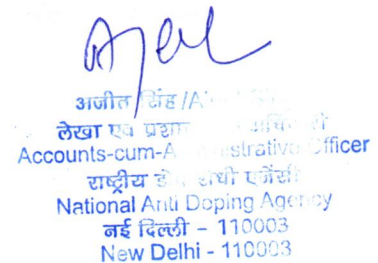 अजीत सिंह /A
लेखा एवं
Accounts-cum-A istrative Officer
राष्ट्रीय एजेंसी
National Anti Doping Agency
नई दिल्ली - 110003
New Delhi - 110003